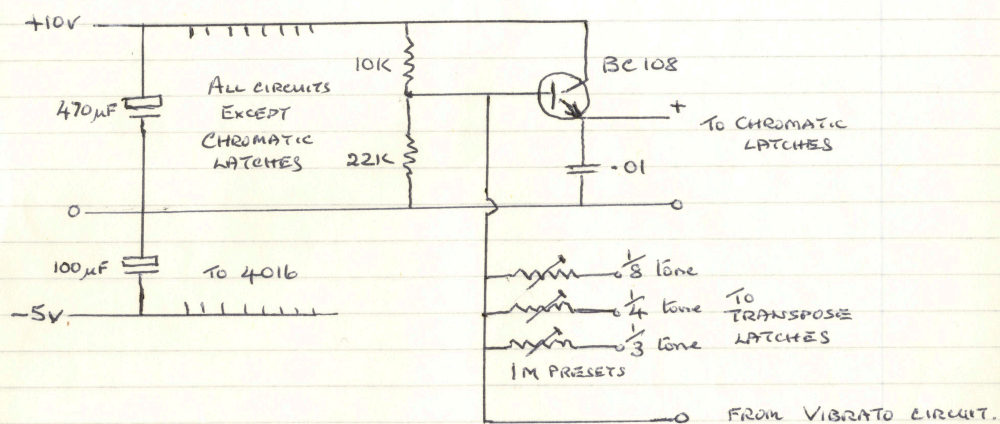 +10V
10K
BC108
470µF
ALL CIRCUITS
EXCEPT
CHROMATIC
LATCHES
+
TO CHROMATIC
LATCHES
22K
.01
0
100µF
TO 4016
-5V
1/8 tone
1/4 tone
1/3 tone
TO
TRANSPOSE
LATCHES
1M PRESETS
FROM VIBRATO CIRCUIT.